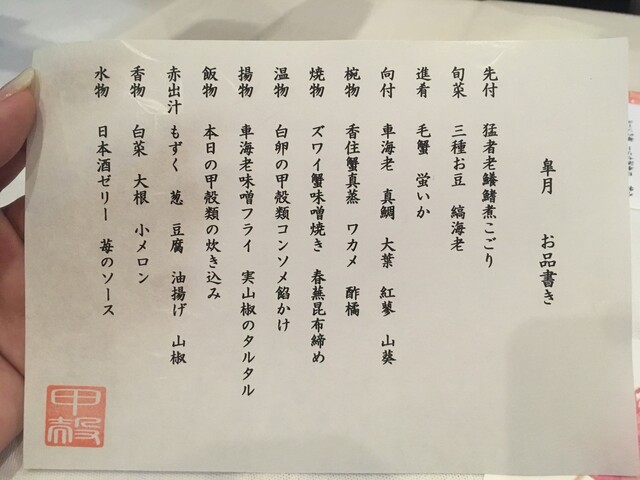 皐月　お品書き
先付　猛者老鱶鰭煮こごり
旬菜　三種お豆　縞海老
進肴　毛蟹　蛍いか
向付　車海老　真鯛　大葉　紅蓼　山葵
椀物　香住蟹真蒸　ワカメ　酢橘
焼物　ズワイ蟹味噌焼き　春蕪昆布締め
温物　白卵の甲殻類コンソメ餡かけ
揚物　車海老味噌フライ　実山椒のタルタル
飯物　本日の甲殻類の炊き込み
赤出汁　もずく　葱　豆腐　油揚げ　山椒
香物　白菜　大根　小メロン
水物　日本酒ゼリー　苺のソース
甲殻